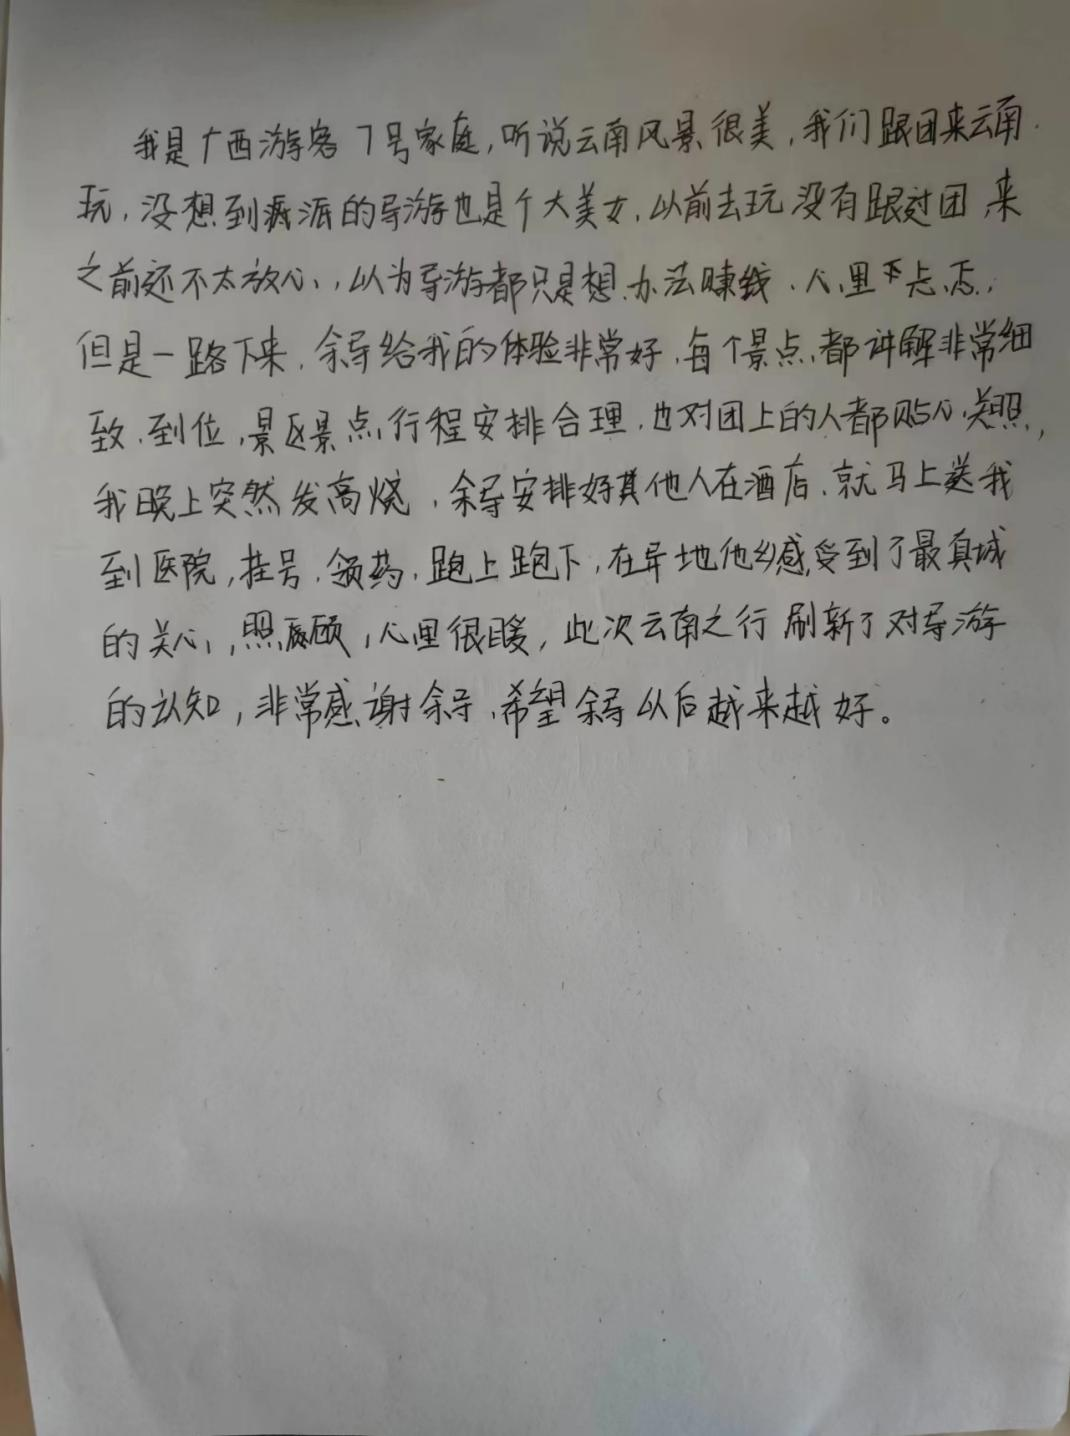 我是广西游客7号家庭,听说云南风景很美,我们跟团来云南
玩,没想到派的导游也是个大美女,以前去玩没有跟过团,来
之前还不太放心,以为导游都只是想办法赚钱,心里忐忑,
但是一路下来,余导给我的体验非常好,每个景点都讲解非常细
致,到位,景区景点行程安排合理,也对团上的人都贴心关照,
我晚上突然发高烧,余导安排好其他人在酒店,就马上送我
到医院,挂号,领药,跑上跑下,在异地他乡感受到了最真城
的关心,照顾,心里很暖,此次云南之行刷新了对导游
的认知,非常感谢余导,希望余导以后越来越好。